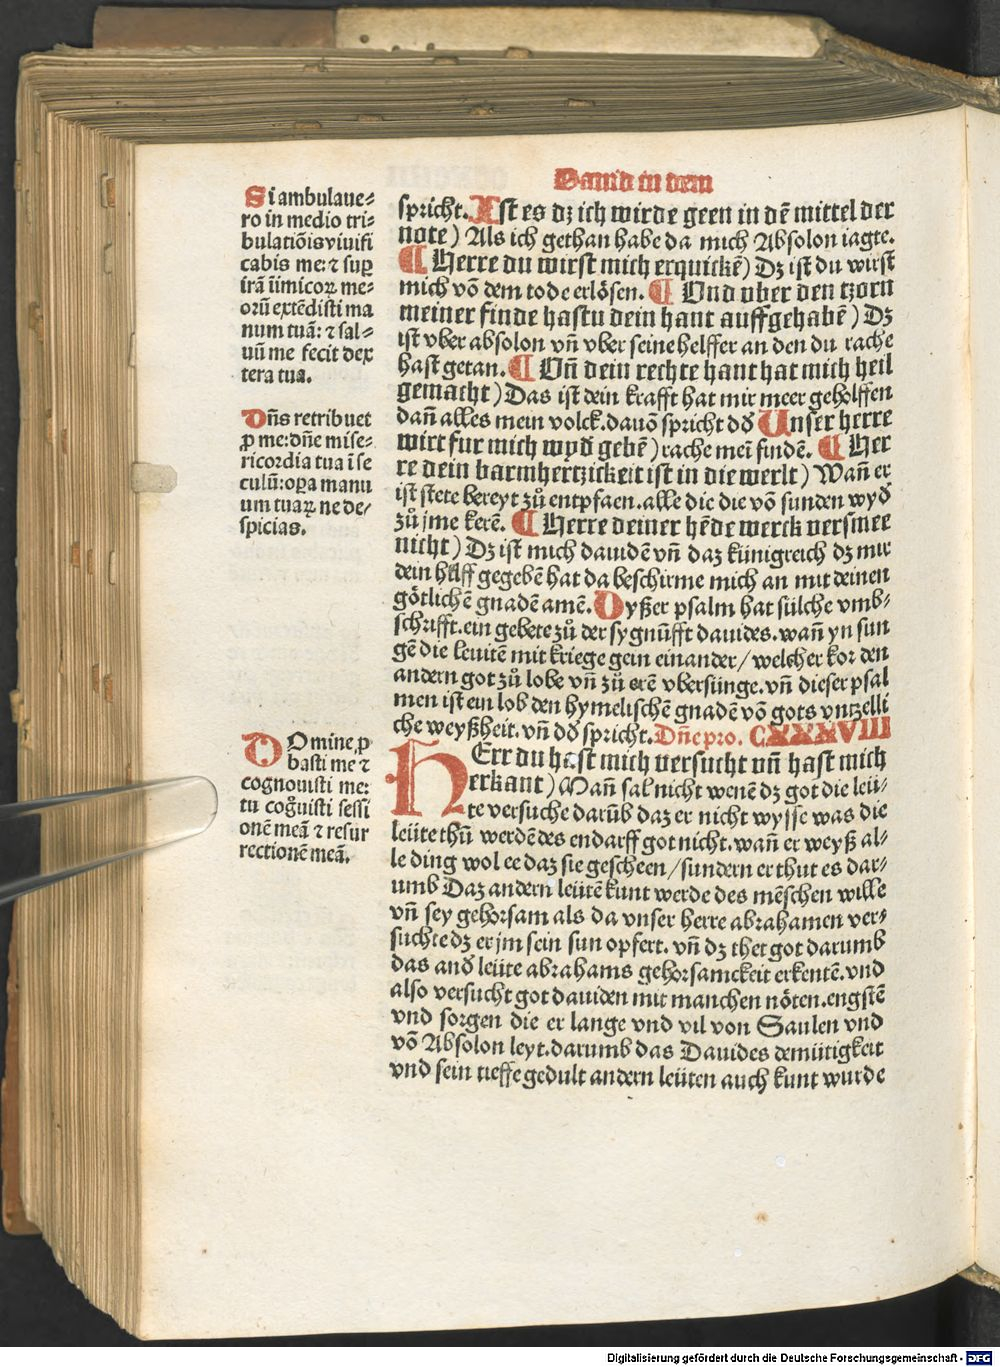 Dauid in dem
Si ambulaue⸗
ro in medio tri⸗
bulatiõis viuifi
cabis me: ⁊ suꝑ
irã iimicoꝝ me⸗
orũ extẽdisti ma
num tuã: ⁊ sal⸗
uũ me fecit dex
tera tua.
Dñs retribuet
ꝓ me: dñe mise⸗
ricordia tua ĩ se
culũ: oꝑa manu
um tuaꝝ ne de⸗
spicias.
DOmine ꝓ
basti me ⁊
cognouisti me:
tu cog̃uisti sessi
onẽ meã ⁊ resur
rectionẽ meã.
spricht. Ist es dz ich wirde geen in dẽ mittel der
note) Als ich gethan habe da mich Absolon iagte.
¶ Herre du wirst mich erquickẽ) Dz ist du wirst
mich võ dem tode erlösen. ¶ Und vber den tzorn
meiner finde hastu dein hant auffgehabẽ) Dz
ist vber absolon vñ vber seine helffer an den du rache
hast getan. ¶ Vñ dein rechte hant hat mich heil
gemacht) Das ist dein krafft hat mir meer geholffen
dañ alles mein volck. dauõ spricht dð Unser herre
wirt fur mich wyð gebẽ) rache mei findẽ. ¶ Her
re dein barmhertzickeit ist in die werlt) Wañ er
ist stete bereyt zů entpfaen. alle die die võ sunden wyð
zů jme kerẽ. ¶ Herre deiner hẽde werck versmee
nicht) Dz ist mich dauidẽ vñ daz künigreich dz mir
dein hilff gegebẽ hat da beschirme mich an mit deinen
götlichẽ gnadẽ amẽ. Dyßer psalm hat sülche vmb⸗
schrifft. ein gebete zů der sygnüfft dauides. wañ yn sun
gẽ die leuitẽ mit kriege gein einander/ welcher kor den
andern got zů lobe vñ zů erẽ vbersünge. vñ dieser psal
men ist ein lob den hymelischẽ gnadẽ võ gots vntzelli
che weyßheit. vñ dð spricht. Dñe pro. CXXXVIII
HErr du hast mich versucht vñ hast mich
erkant) Mañ sal nicht wenẽ dz got die leü⸗
te versuche darũb daz er nicht wysse was die
leüte thũ werdẽ des endarff got nicht. wañ er weyß al⸗
le ding wol ee daz sie gescheen/ sundern er thut es dar⸗
umb Daz andern leütẽ kunt werde des mẽschen wille
vñ sey gehorsam als da vnser herre abrahamen ver⸗
suchte dz er jm sein sun opfert. vñ dz thet got darumb
das anð leüte abrahams gehorsamckeit erkentẽ. vnd
also versucht got dauiden mit manchen nöten. engstẽ
vnd sorgen die er lange vnd vil von Saulen vnd
võ Absolon leyt. darumb das Dauides demütigkeit
vnd sein tieffe gedult andern leüten auch kunt wurde
Digitalisierung gefördert durch die Deutsche Forschungsgemeinschaft - DFG